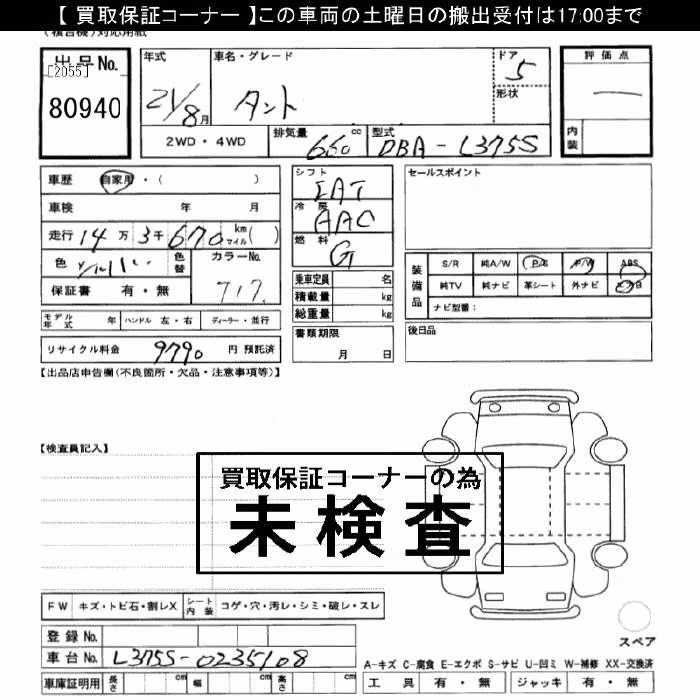 【 買取保証コーナー 】この車両の土曜日の搬出受付は17:00まで
(複合機)対応用紙
出品No.
[2055]
80940
年式
21/8月
車名・グレード
タント
ドア
5
形状
評価点
内装
2WD・4WD
排気量
660 cc
型式
DBA-L375S
車歴 自家用・( )
車検 年 月
走行 14万3千670 km マイル( )
色
色替
カラーNo.
717
保証書 有・無
シフト
IAT
冷房
AAC
燃料
G
乗車定員 名
積載量 kg
総重量 kg
セールスポイント
装備品
S/R 純A/W P/S P/W ABS
純TV 純ナビ 革シート 外ナビ エアB
ナビ型番：
モデル年式 年 ハンドル 左・右 ディーラー・並行
リサイクル料金 9790 円 預託済
書類期限
月 日
後日品
【出品店申告欄(不良箇所・欠品・注意事項等)】
【検査員記入】
買取保証コーナーの為
未検査
FW キズ・トビ石・割レX シート内装 コゲ・穴・汚レ・シミ・破レ・スレ
登録 No.
車台 No. L375S-0235108
車庫証明用 長さ cm 幅 cm 高さ cm
スペア
A-キズ C-腐食 E-エクボ S-サビ U-凹ミ W-補修 XX-交換済
工具 有・無 ジャッキ 有・無